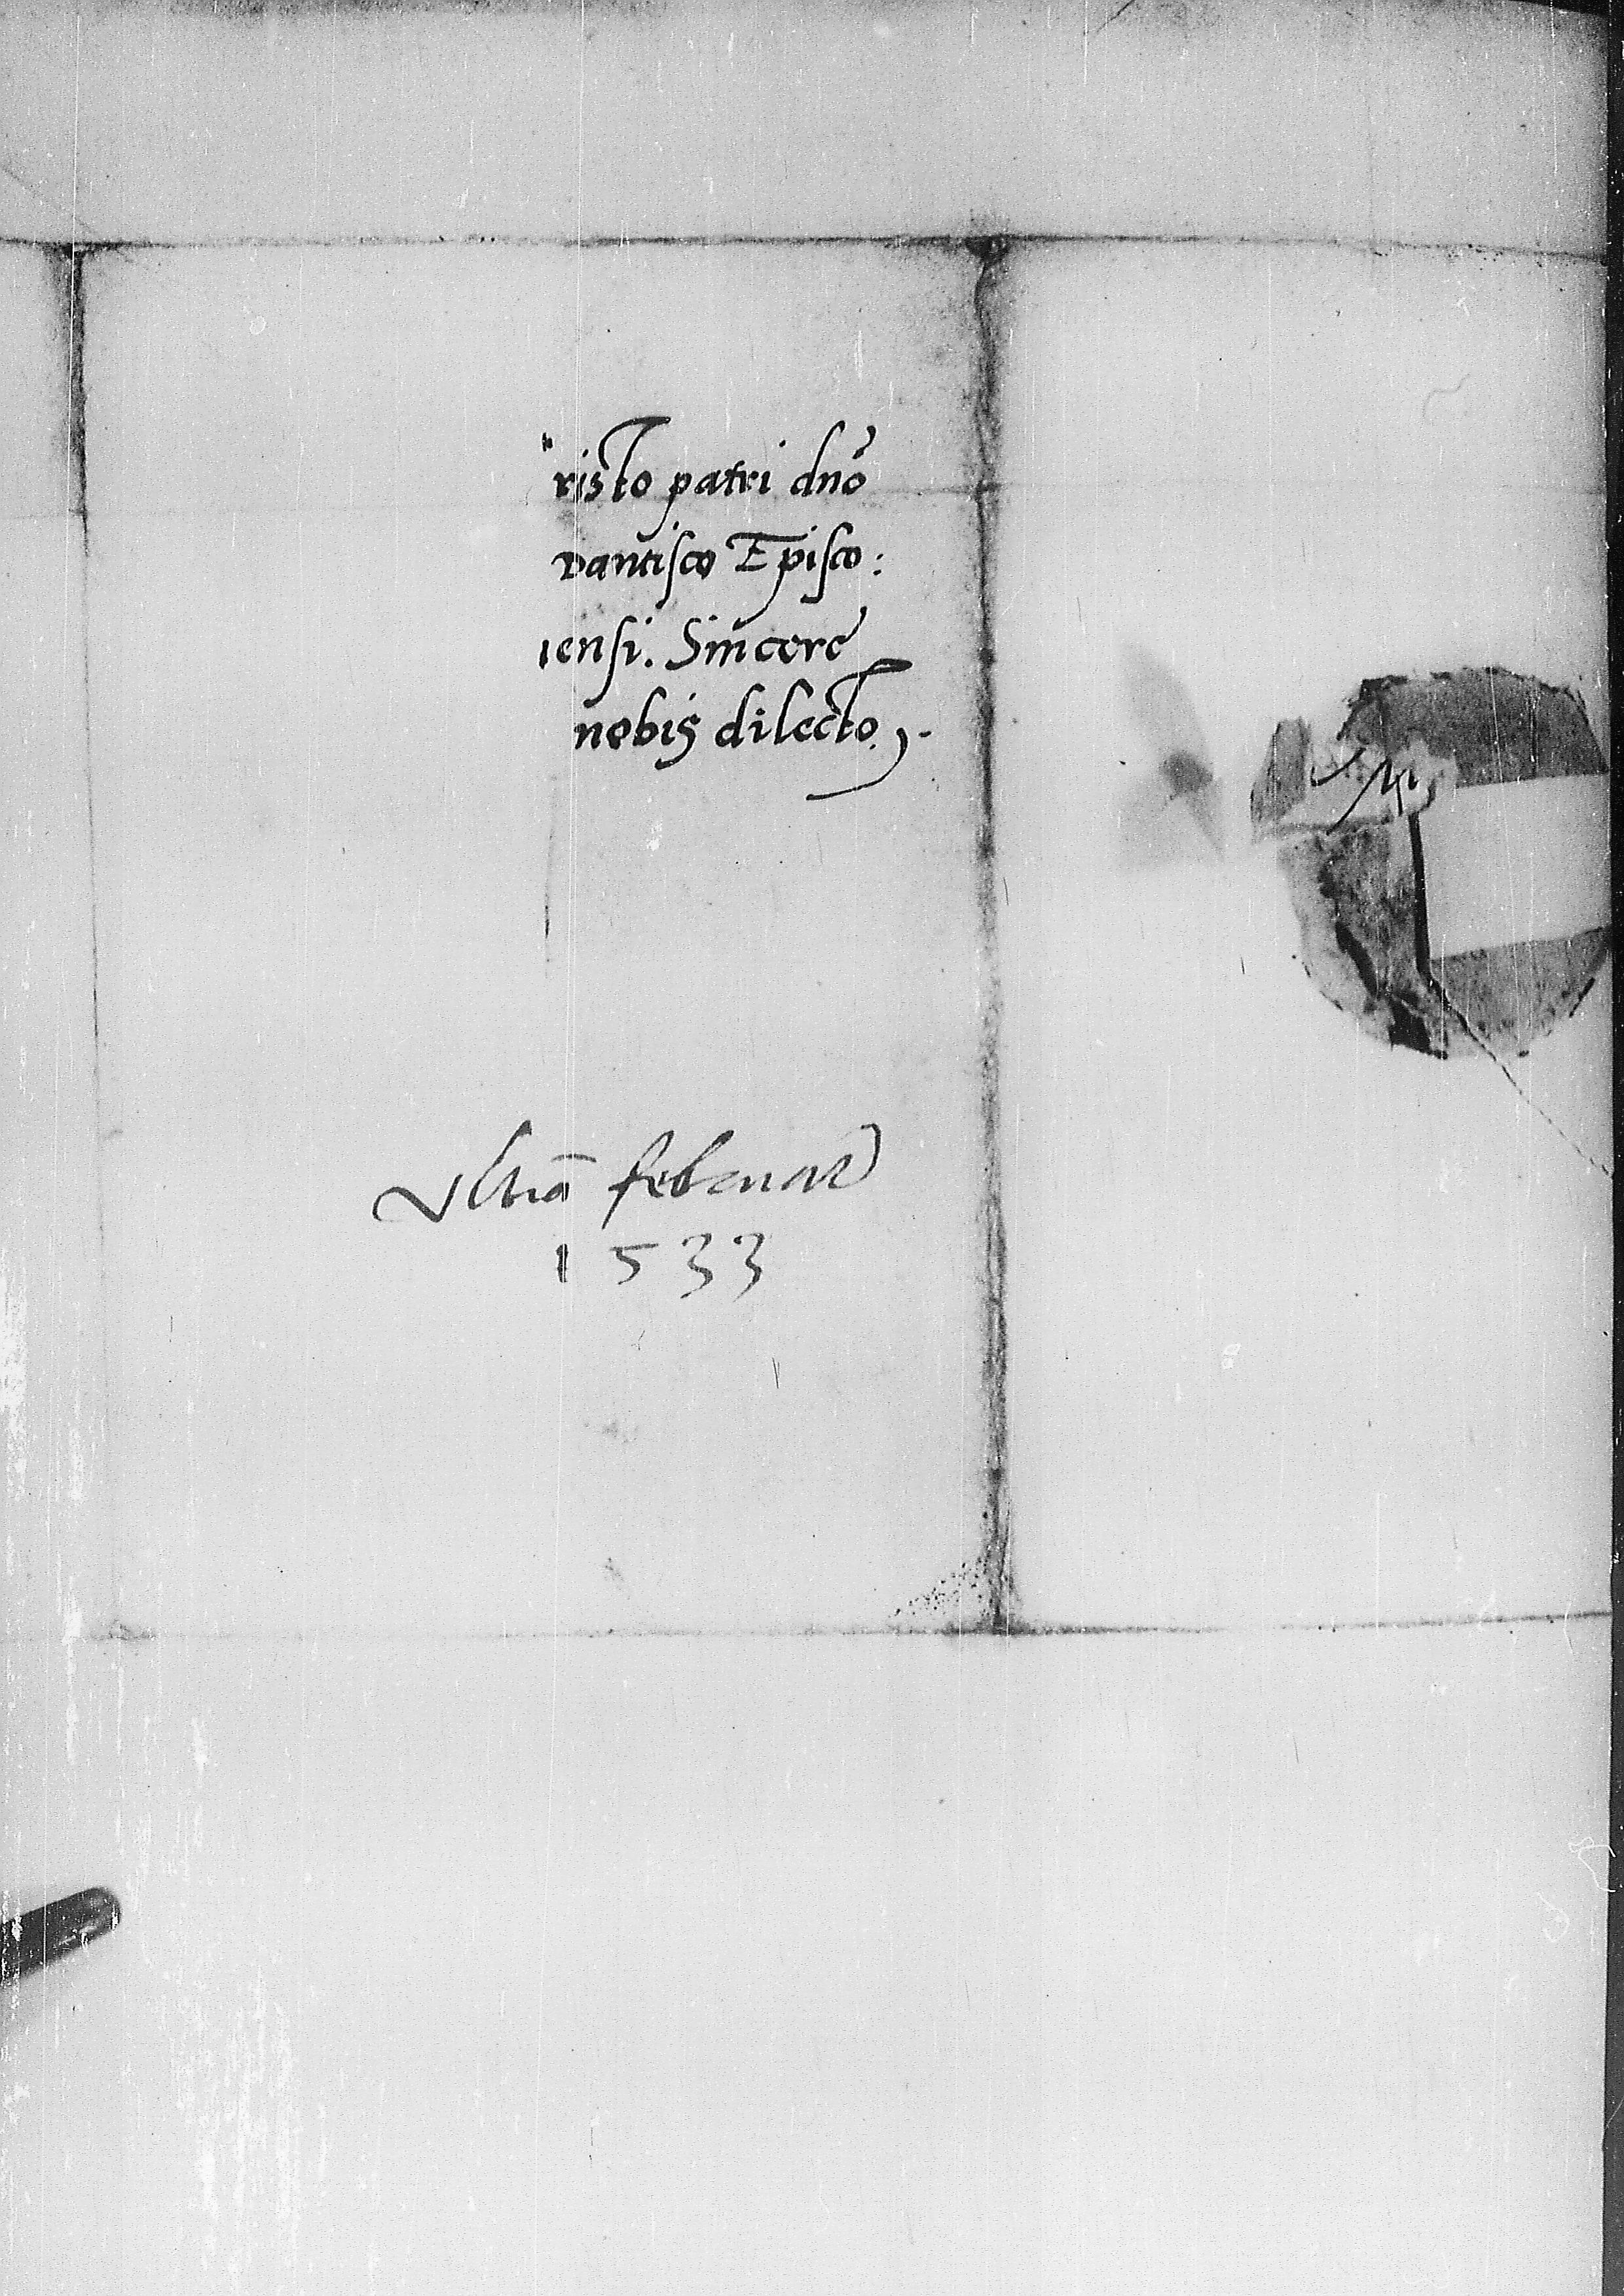 risto patri dnō
Dantisco Episco:
iensi. Sincere
nobis dilecto.
Vltiā februar
1533